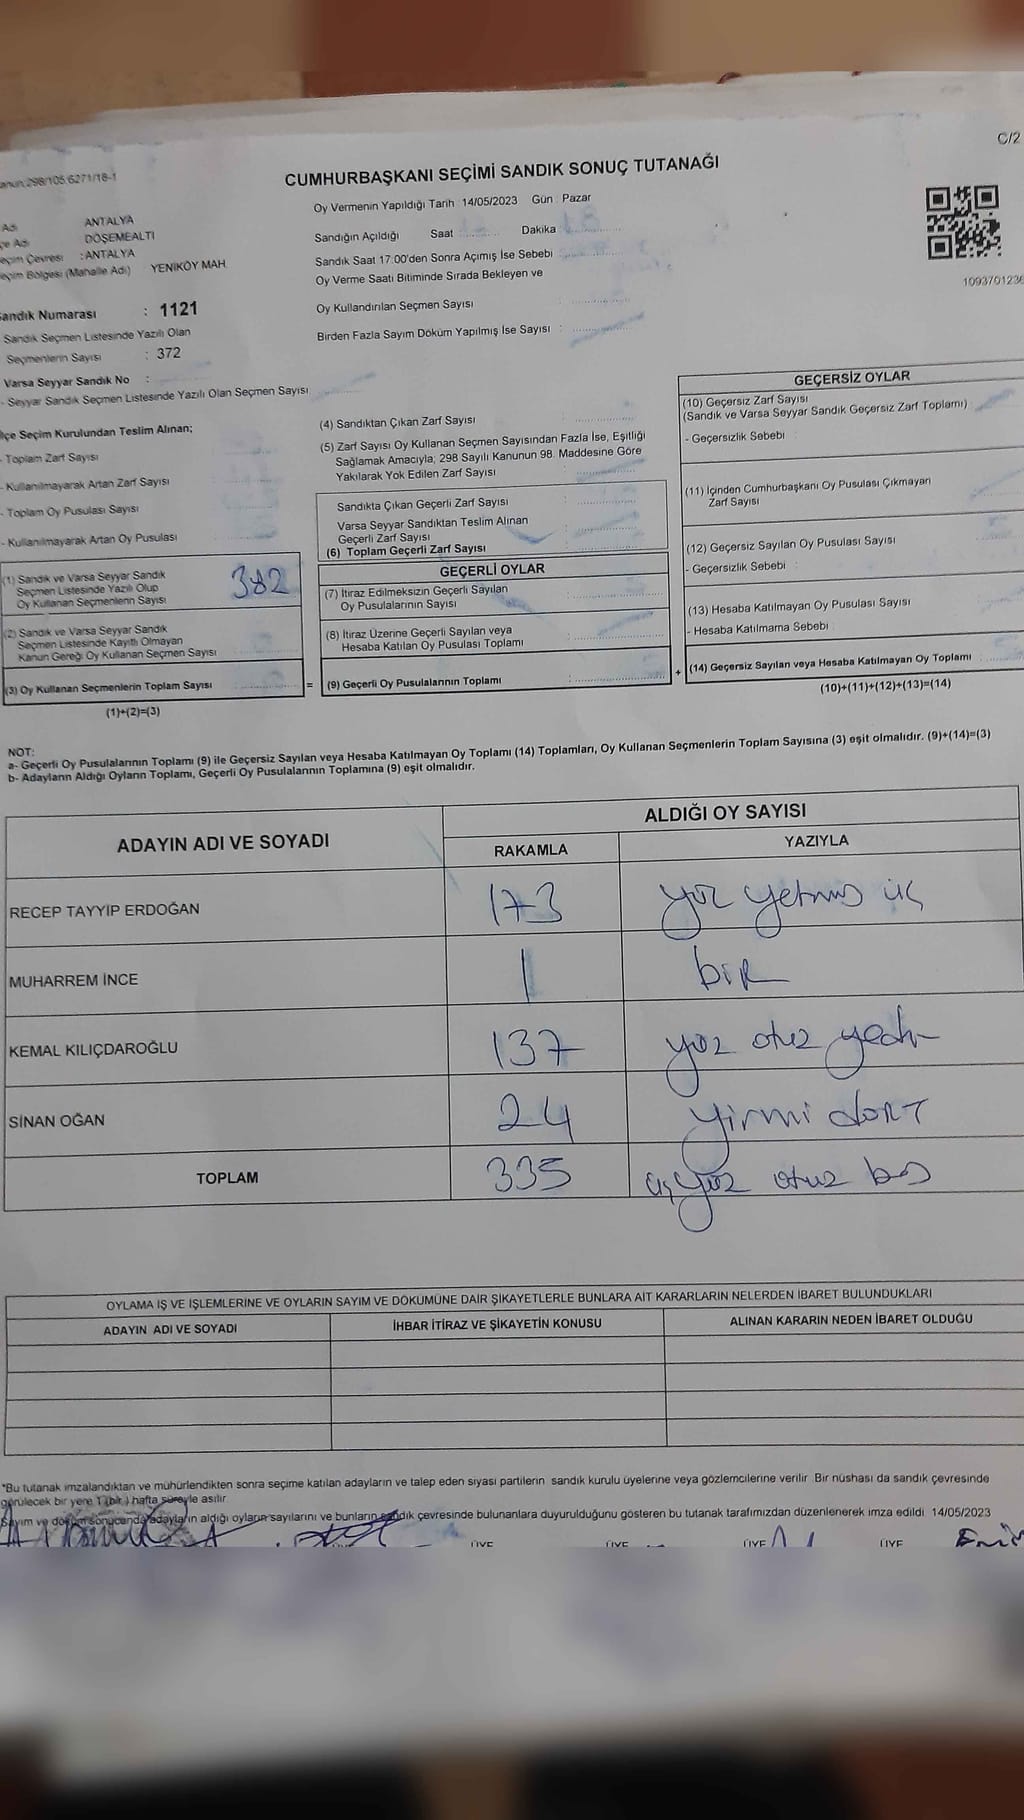 C/2
CUMHURBAŞKANI SEÇİMİ SANDIK SONUÇ TUTANAĞI
298/105.6271/18-1
Oy Vermenin Yapıldığı Tarih 14/05/2023 Gün Pazar
Adı ANTALYA
Adı DÖŞEMEALTI
Çevresi : ANTALYA
Bölgesi (Mahalle Adı) YENİKÖY MAH.
Sandığın Açıldığı Saat Dakika
Sandık Saat 17:00'den Sonra Açımış İse Sebebi
Oy Verme Saati Bitiminde Sırada Bekleyen ve
Oy Kullandırılan Seçmen Sayısı
Birden Fazla Sayım Döküm Yapılmış İse Sayısı :
Sandık Numarası : 1121
Sandık Seçmen Listesinde Yazılı Olan
Seçmenlerin Sayısı : 372
Varsa Seyyar Sandık No :
- Seyyar Sandık Seçmen Listesinde Yazılı Olan Seçmen Sayısı
İlçe Seçim Kurulundan Teslim Alınan;
- Toplam Zarf Sayısı
- Kullanılmayarak Artan Zarf Sayısı
- Toplam Oy Pusulası Sayısı
- Kullanılmayarak Artan Oy Pusulası
(1) Sandık ve Varsa Seyyar Sandık
Seçmen Listesinde Yazılı Olup
Oy Kullanan Seçmenlerin Sayısı
(2) Sandık ve Varsa Seyyar Sandık
Seçmen Listesinde Kayıtlı Olmayan
Kanun Gereği Oy Kullanan Seçmen Sayısı
(3) Oy Kullanan Seçmenlerin Toplam Sayısı
(1)+(2)=(3)
(4) Sandıktan Çıkan Zarf Sayısı
(5) Zarf Sayısı Oy Kullanan Seçmen Sayısından Fazla İse, Eşitliği
Sağlamak Amacıyla; 298 Sayılı Kanunun 98. Maddesine Göre
Yakılarak Yok Edilen Zarf Sayısı
Sandıkta Çıkan Geçerli Zarf Sayısı
Varsa Seyyar Sandıktan Teslim Alınan
Geçerli Zarf Sayısı
(6) Toplam Geçerli Zarf Sayısı
GEÇERLİ OYLAR
(7) İtiraz Edilmeksizin Geçerli Sayılan
Oy Pusulalarının Sayısı
(8) İtiraz Üzerine Geçerli Sayılan veya
Hesaba Katılan Oy Pusulası Toplamı
= (9) Geçerli Oy Pusulalarının Toplamı
GEÇERSİZ OYLAR
(10) Geçersiz Zarf Sayısı
(Sandık ve Varsa Seyyar Sandık Geçersiz Zarf Toplamı)
- Geçersizlik Sebebi
(11) İçinden Cumhurbaşkanı Oy Pusulası Çıkmayan
Zarf Sayısı
(12) Geçersiz Sayılan Oy Pusulası Sayısı
- Geçersizlik Sebebi :
(13) Hesaba Katılmayan Oy Pusulası Sayısı
- Hesaba Katılmama Sebebi
+ (14) Geçersiz Sayılan veya Hesaba Katılmayan Oy Toplamı
(10)+(11)+(12)+(13)=(14)
NOT:
a- Geçerli Oy Pusulalarının Toplamı (9) ile Geçersiz Sayılan veya Hesaba Katılmayan Oy Toplamı (14) Toplamları, Oy Kullanan Seçmenlerin Toplam Sayısına (3) eşit olmalıdır. (9)+(14)=(3)
b- Adayların Aldığı Oyların Toplamı, Geçerli Oy Pusulalarının Toplamına (9) eşit olmalıdır.
ADAYIN ADI VE SOYADI ALDIĞI OY SAYISI
RAKAMLA YAZIYLA
RECEP TAYYİP ERDOĞAN 173 yüz yetmiş üç
MUHARREM İNCE 1 bir
KEMAL KILIÇDAROĞLU 137 yüz otuz yedi
SİNAN OĞAN 24 yirmi dört
TOPLAM 335 üçyüz otuz beş
OYLAMA İŞ VE İŞLEMLERİNE VE OYLARIN SAYIM VE DÖKÜMÜNE DAİR ŞİKAYETLERLE BUNLARA AİT KARARLARIN NELERDEN İBARET BULUNDUKLARI
ADAYIN ADI VE SOYADI İHBAR İTİRAZ VE ŞİKAYETİN KONUSU ALINAN KARARIN NEDEN İBARET OLDUĞU
*Bu tutanak imzalandıktan ve mühürlendikten sonra seçime katılan adayların ve talep eden siyasi partilerin sandık kurulu üyelerine veya gözlemcilerine verilir. Bir nüshası da sandık çevresinde
görülecek bir yere 1 (bir) hafta süreyle asılır.
Sayım ve döküm sonucunda adayların aldığı oyların sayılarını ve bunların sandık çevresinde bulunanlara duyurulduğunu gösteren bu tutanak tarafımızdan düzenlenerek imza edildi 14/05/2023
ÜYE ÜYE ÜYE ÜYE